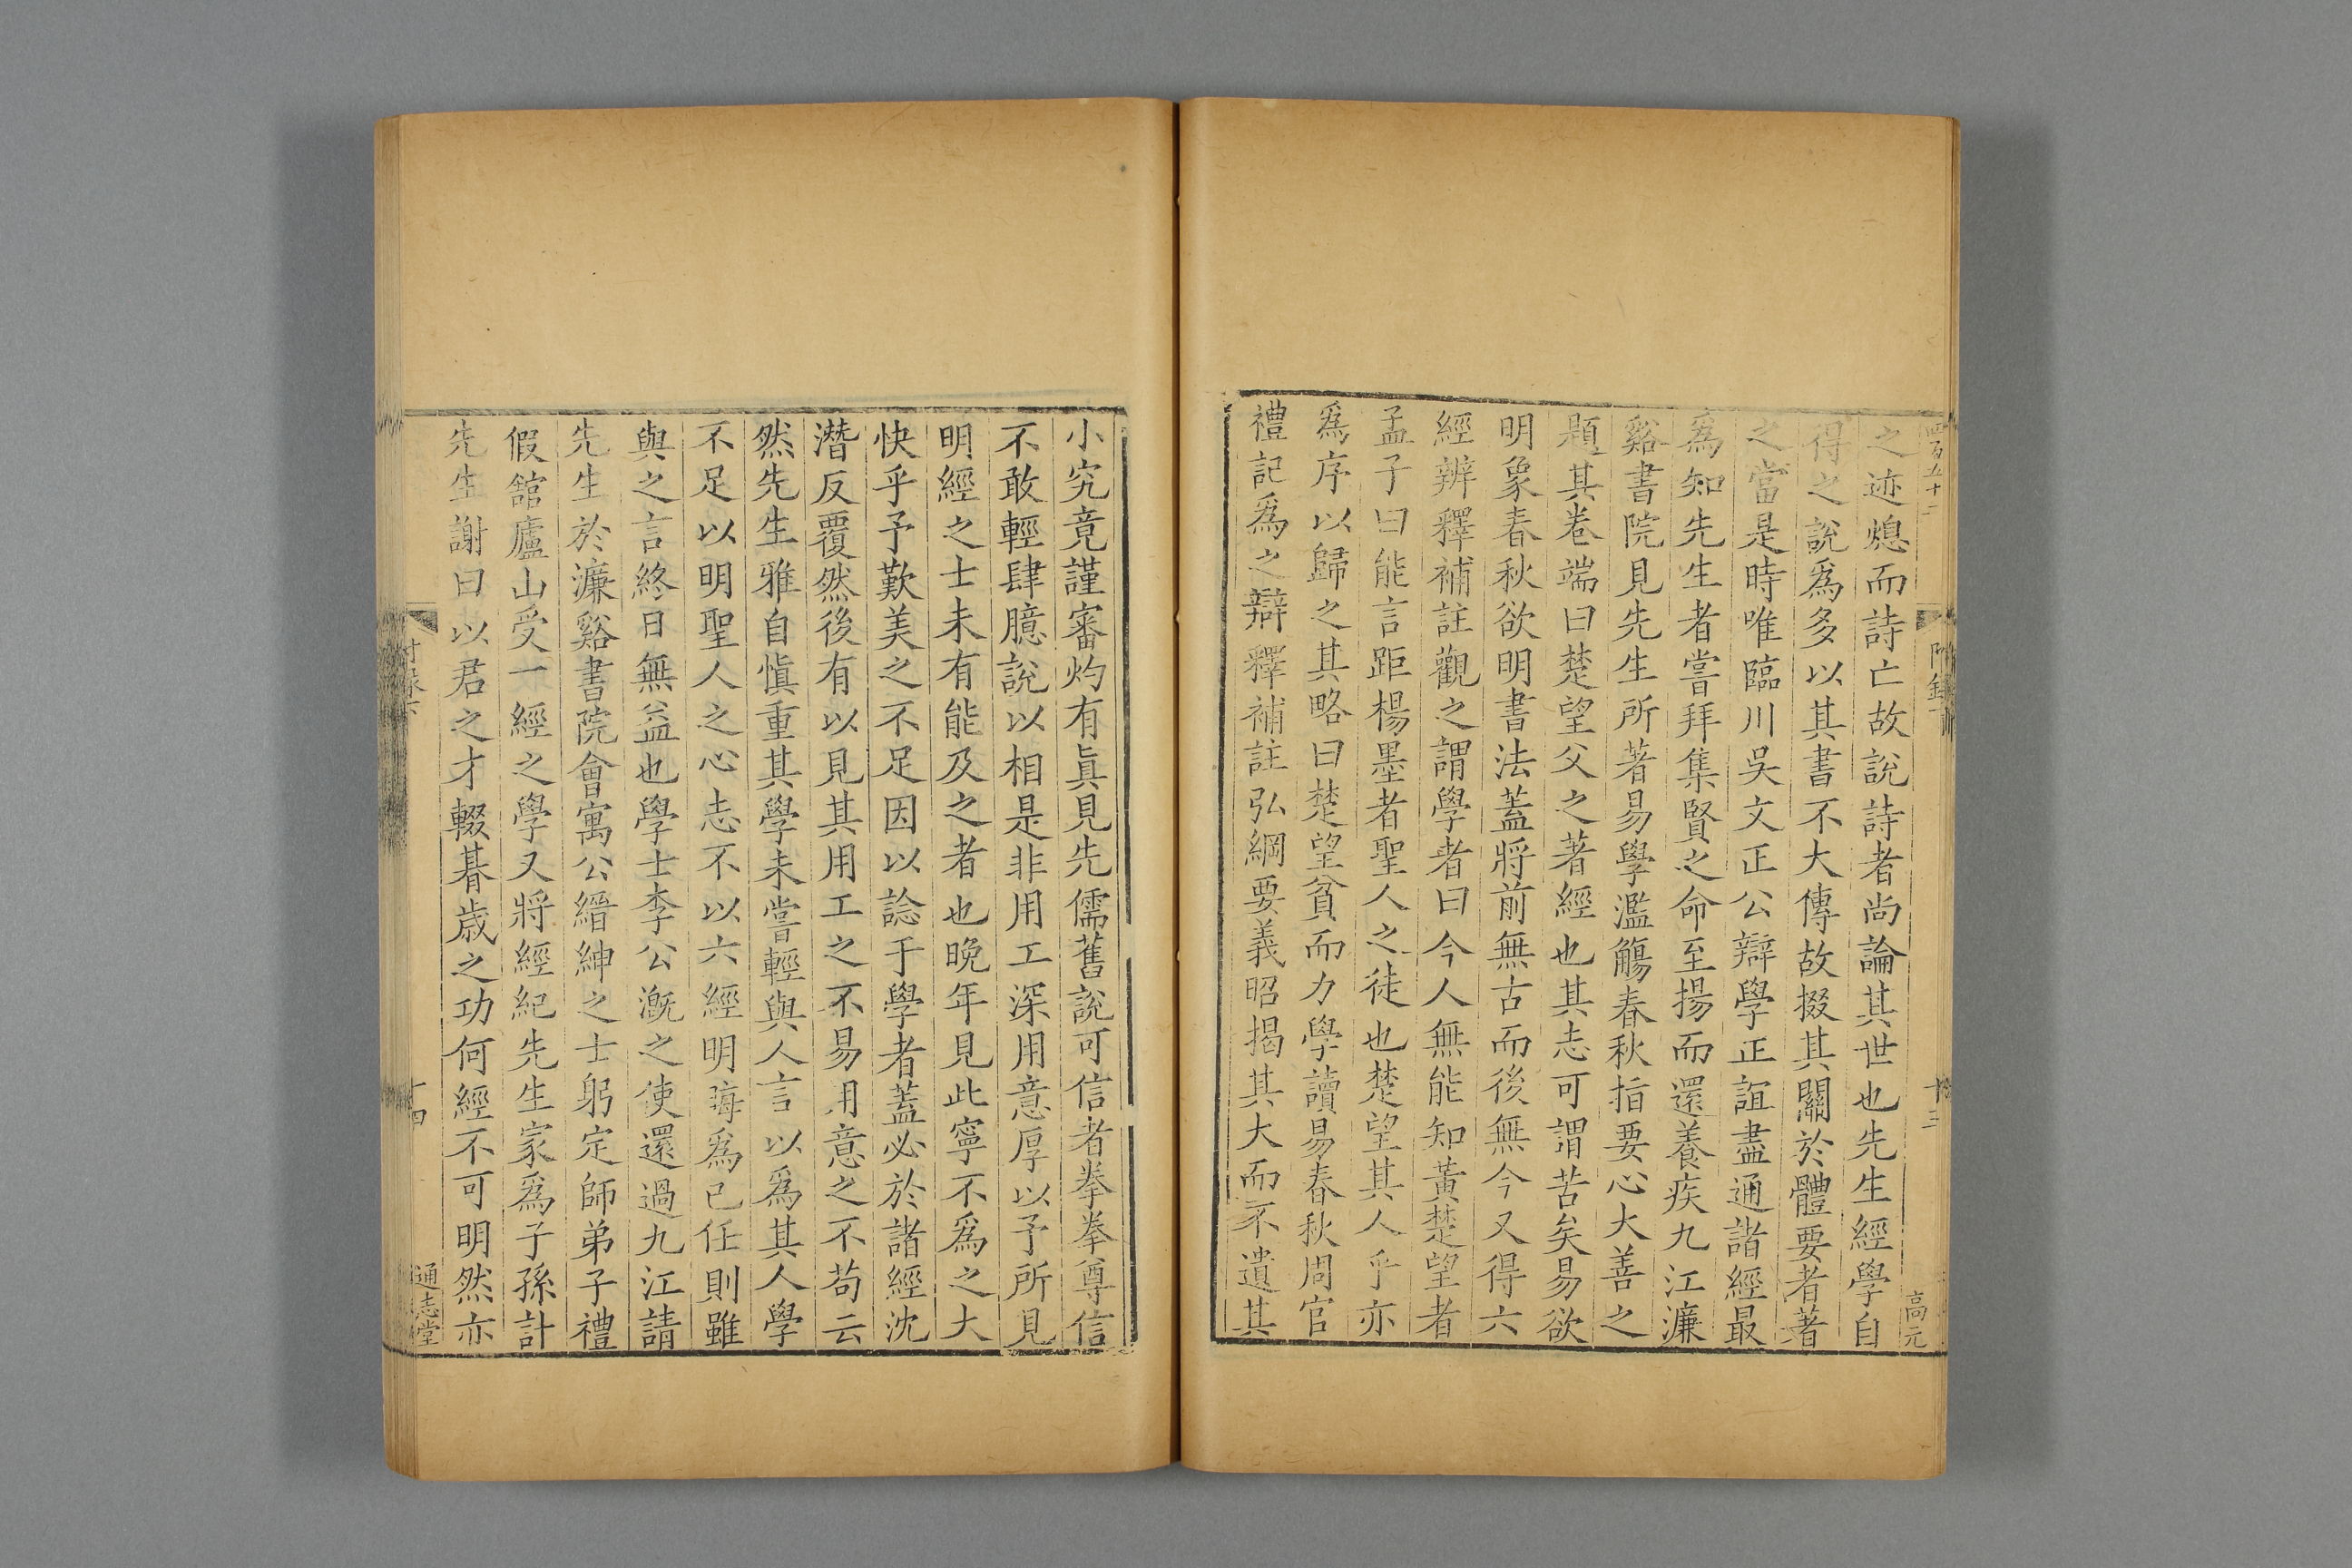 四百五十二
之迹熄而詩亡故說詩者尚論其世也先生經學自
得之說爲多以其書不大傳故掇其關於體要者著
之當是時唯臨川吳文正公辯學正誼盡通諸經最
爲知先生者嘗拜集賢之命至揚而還養疾九江濂
谿書院見先生所著易學濫觴春秋指要心大善之
題其卷端曰楚望父之著經也其志可謂苦矣易欲
明象春秋欲明書法蓋將前無古而後無今又得六
經辨釋補註觀之謂學者曰今人無能知黃楚望者
孟子曰能言距楊墨者聖人之徒也楚望其人乎亦
爲序以歸之其略曰楚望貧而力學讀易春秋周官
禮記爲之辯釋補註弘綱要義昭揭其大而不遺其
高元
小究竟謹審灼有眞見先儒舊說可信者拳拳尊信
不敢輕肆臆說以相是非用工深用意厚以予所見
明經之士未有能及之者也晚年見此寧不爲之大
快乎予歎美之不足因以諗于學者蓋必於諸經沈
潛反覆然後有以見其用工之不易用意之不苟云
然先生雅自愼重其學未嘗輕與人言以爲其人學
不足以明聖人之心志不以六經明晦爲己任則雖
與之言終日無益也學士李公溉之使還過九江請
先生於濂谿書院會寓公縉紳之士躬定師弟子禮
假館廬山受一經之學又將經紀先生家爲子孫計
先生謝曰以君之才輟朞歲之功何經不可明然亦
十四
通志堂